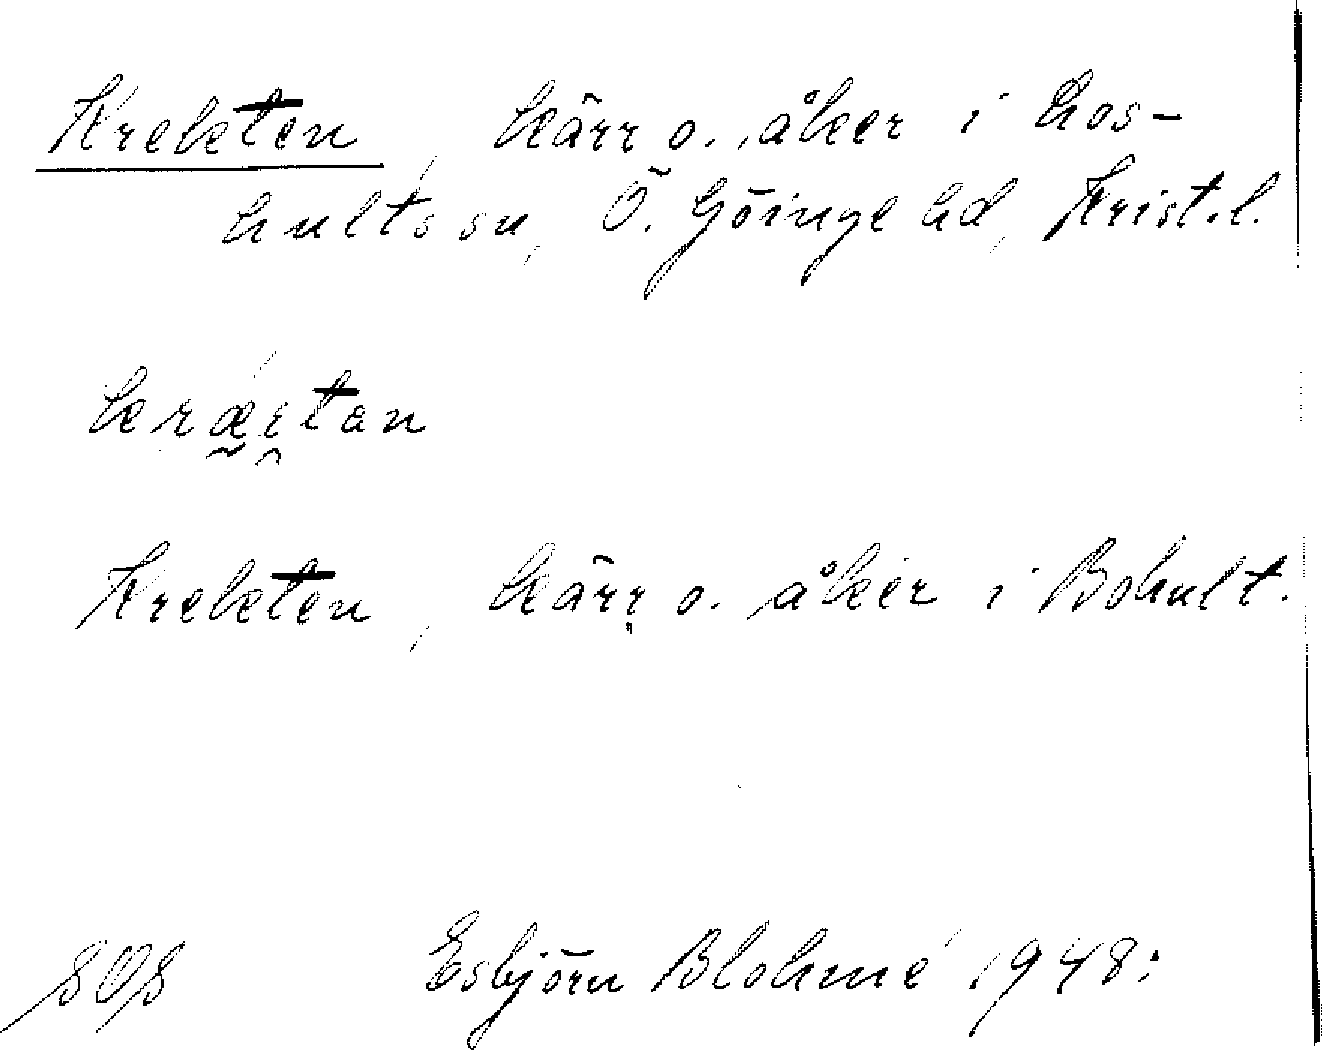 Krekten, kärr o. åker i Los-
hults sn, Ö. Göinge hd, Krist.l.
Krekten, kärr o. åker i Bohult.
Esbjörn Blohmé 1948: